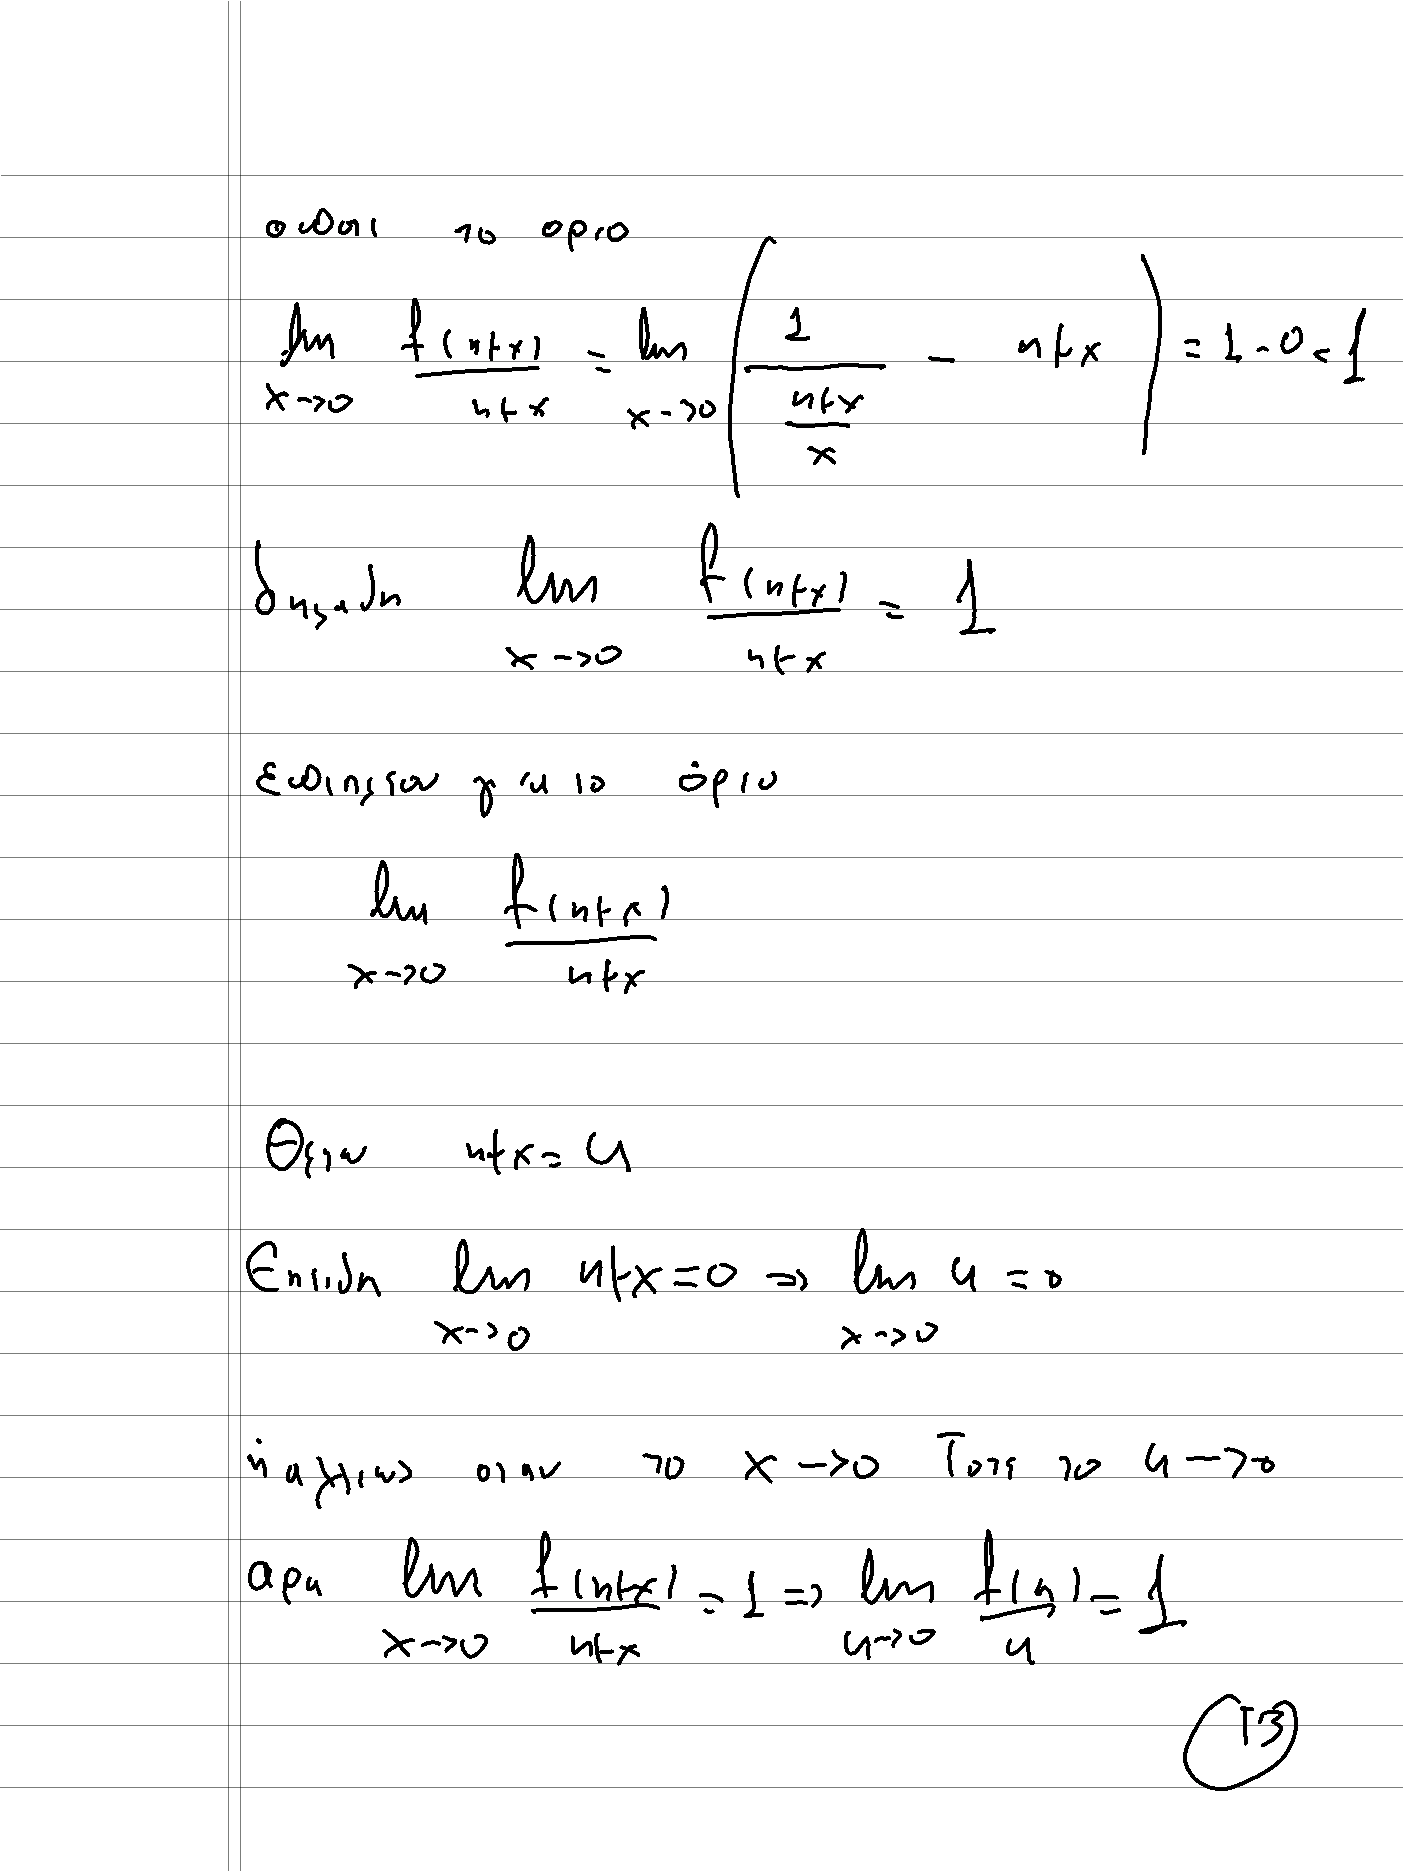 οποτε το οριο
lim_{x→0} f(ημx)/ημx = lim_{x→0} ( 1/(ημx/x) - ημx ) = 1-0=1
δηλαδη lim_{x→0} f(ημx)/ημx = 1
για το όριο
lim_{x→0} f(ημx)/ημx
Θετω ημx=u
Επειδη lim_{x→0} ημx=0 => lim_{x→0} u=0
ή αλλιως οταν το x→0 Τοτε το u→0
αρα lim_{x→0} f(ημx)/ημx = 1 => lim_{u→0} f(u)/u = 1
13